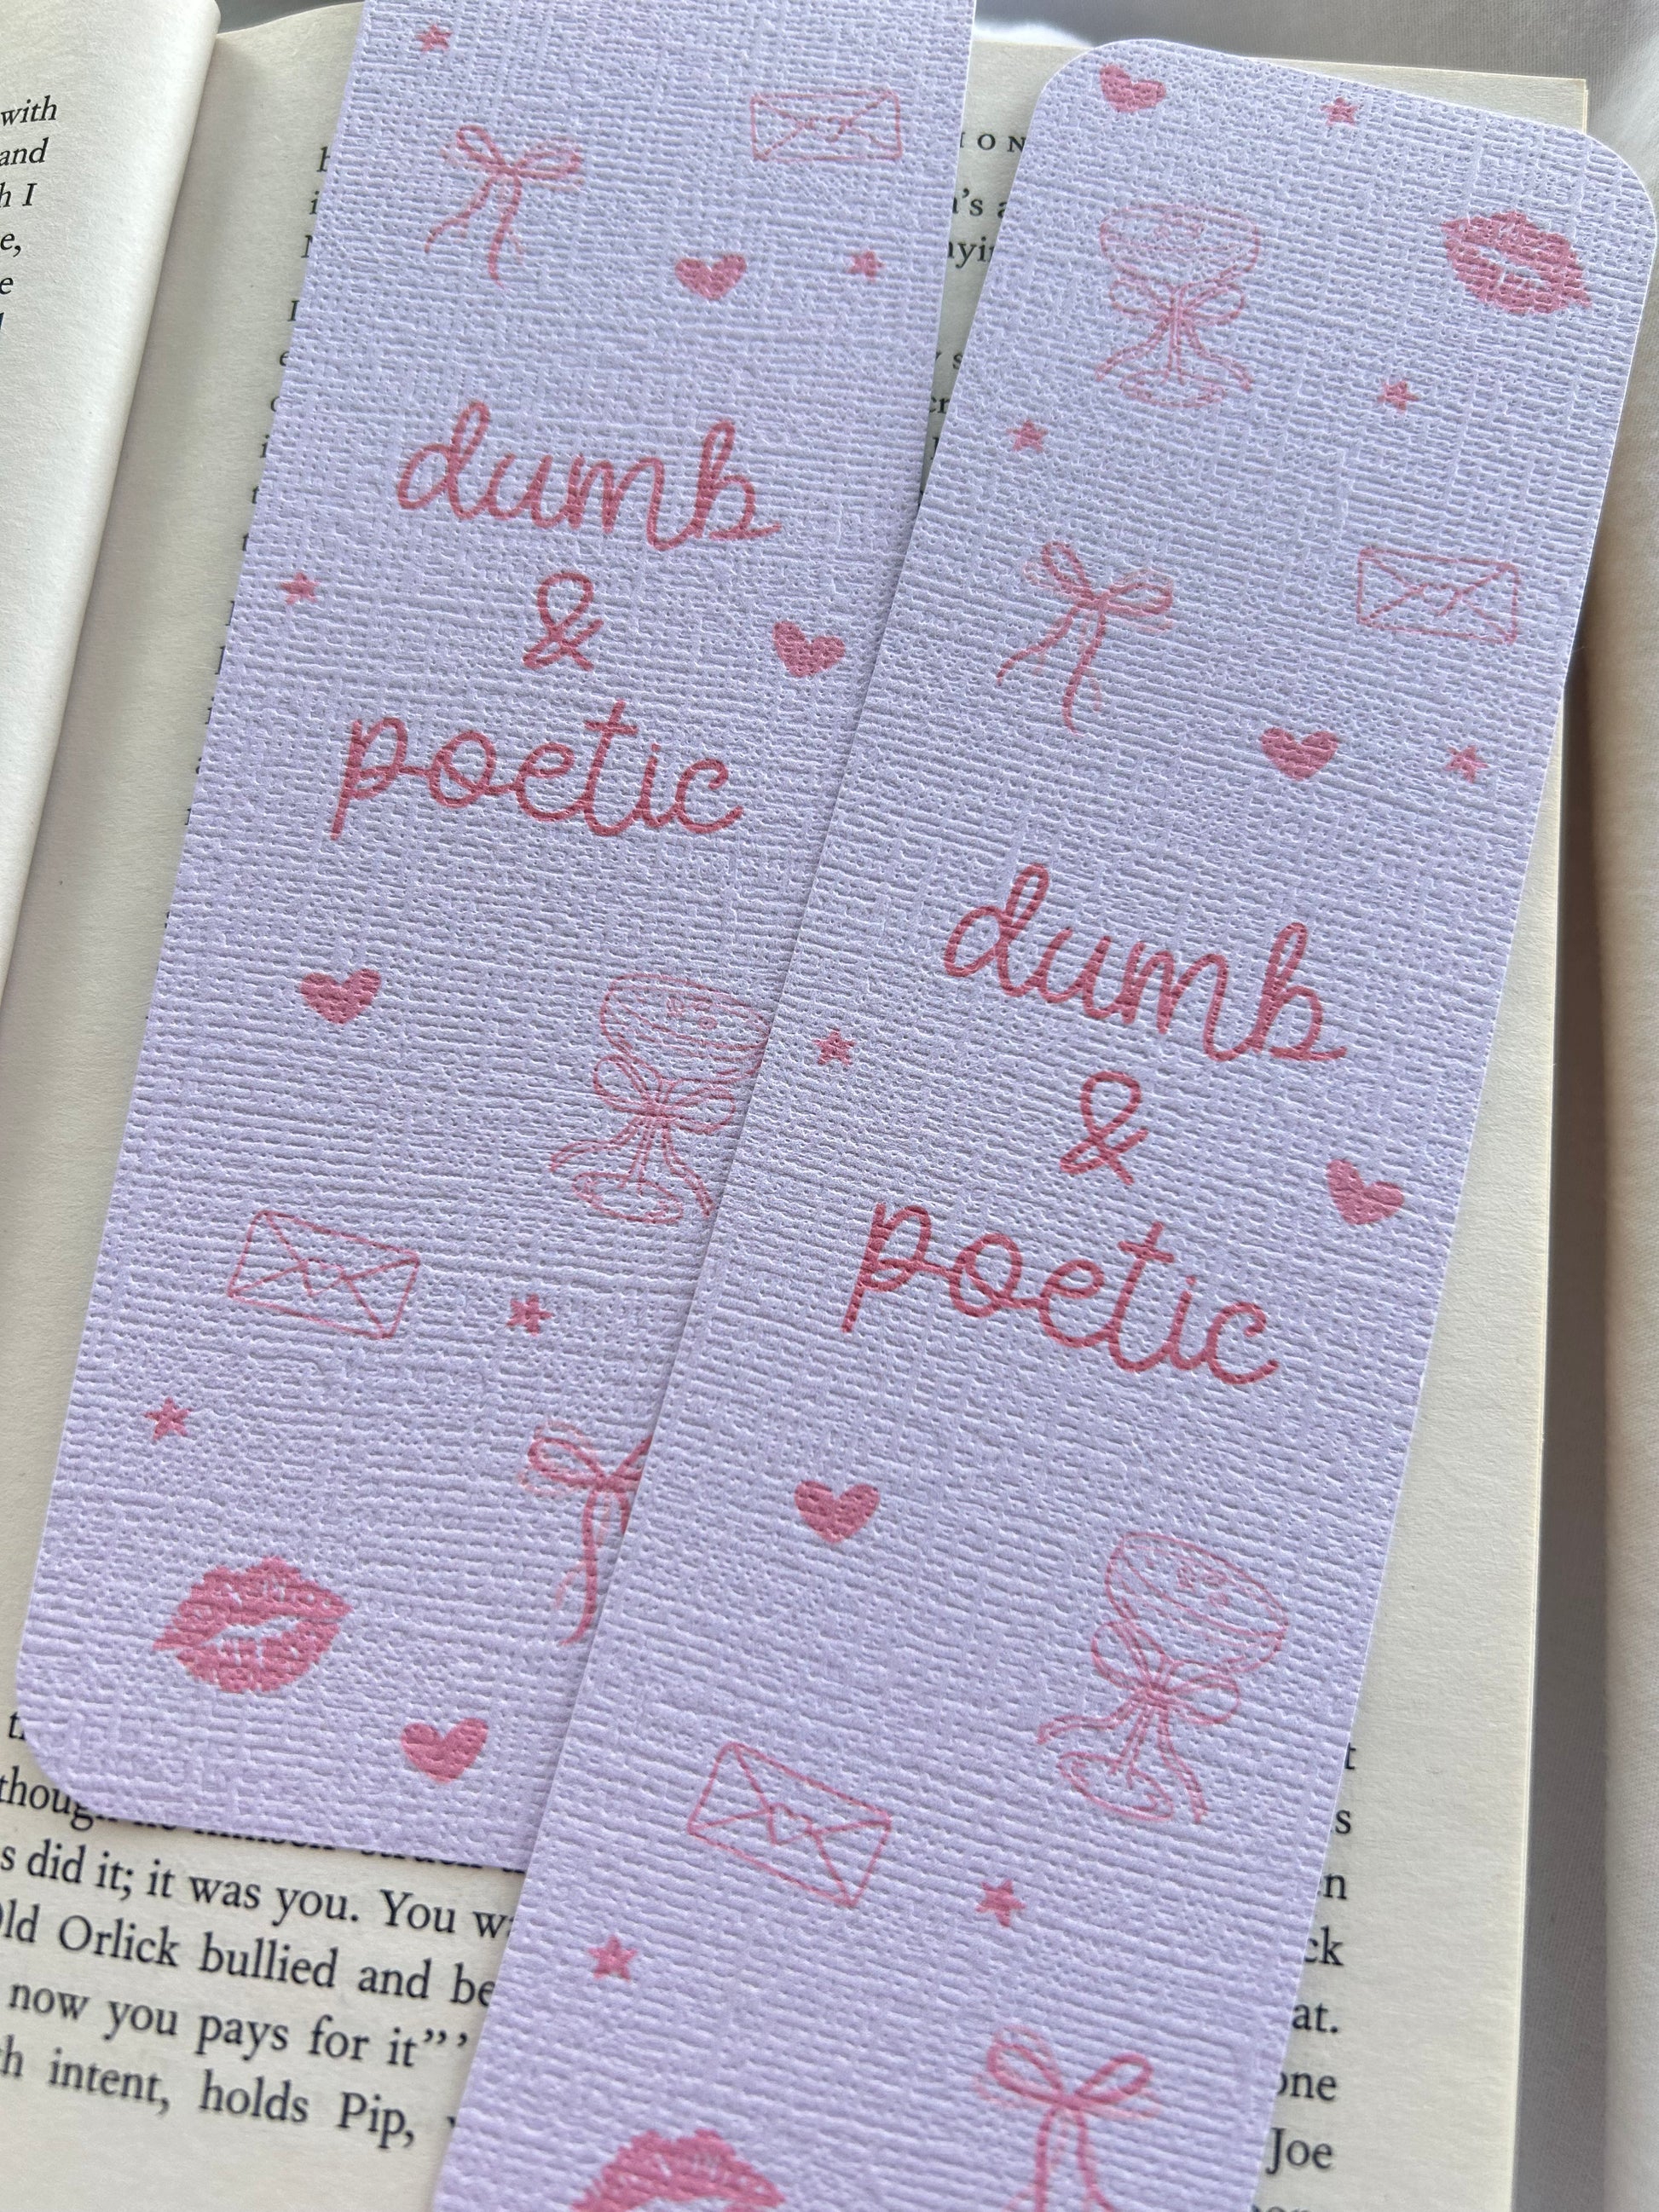 with
and
h I
dumb
&
poetic
dumb
&
poetic
s did it; it was you. You
Old Orlick bullied and
now you pays for it”’
intent, holds Pip,
Joe